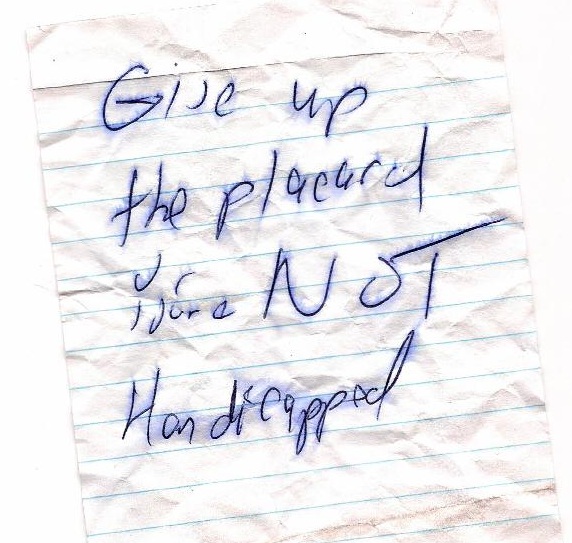 Give up
the placard
NOT
Handicapped